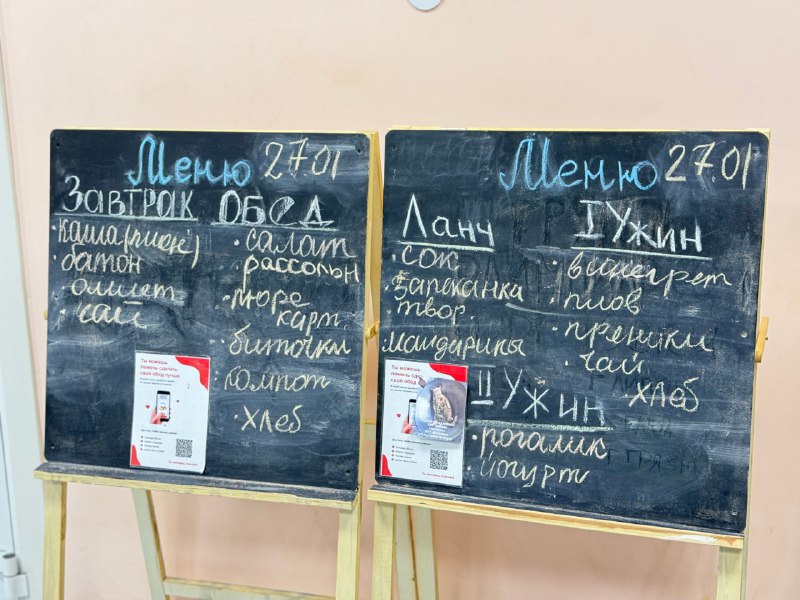 Меню 27.01
Завтрак
· каша (пшён.)
· батон
омлет
· чай
ОБЕД
· салат
рассольн
· пюре
карт.
· биточки
· компот
· хлеб
Ты можешь
помочь сделать
свой обед лучше
Меню 27.01
Ланч
· сок
· запеканка
твор.
мандарины
I Ужин
· винегрет
· плов
· пряники
· чай
· хлеб
Ты можешь
помочь сделать
свой обед
II Ужин
· рогалик
· йогурт